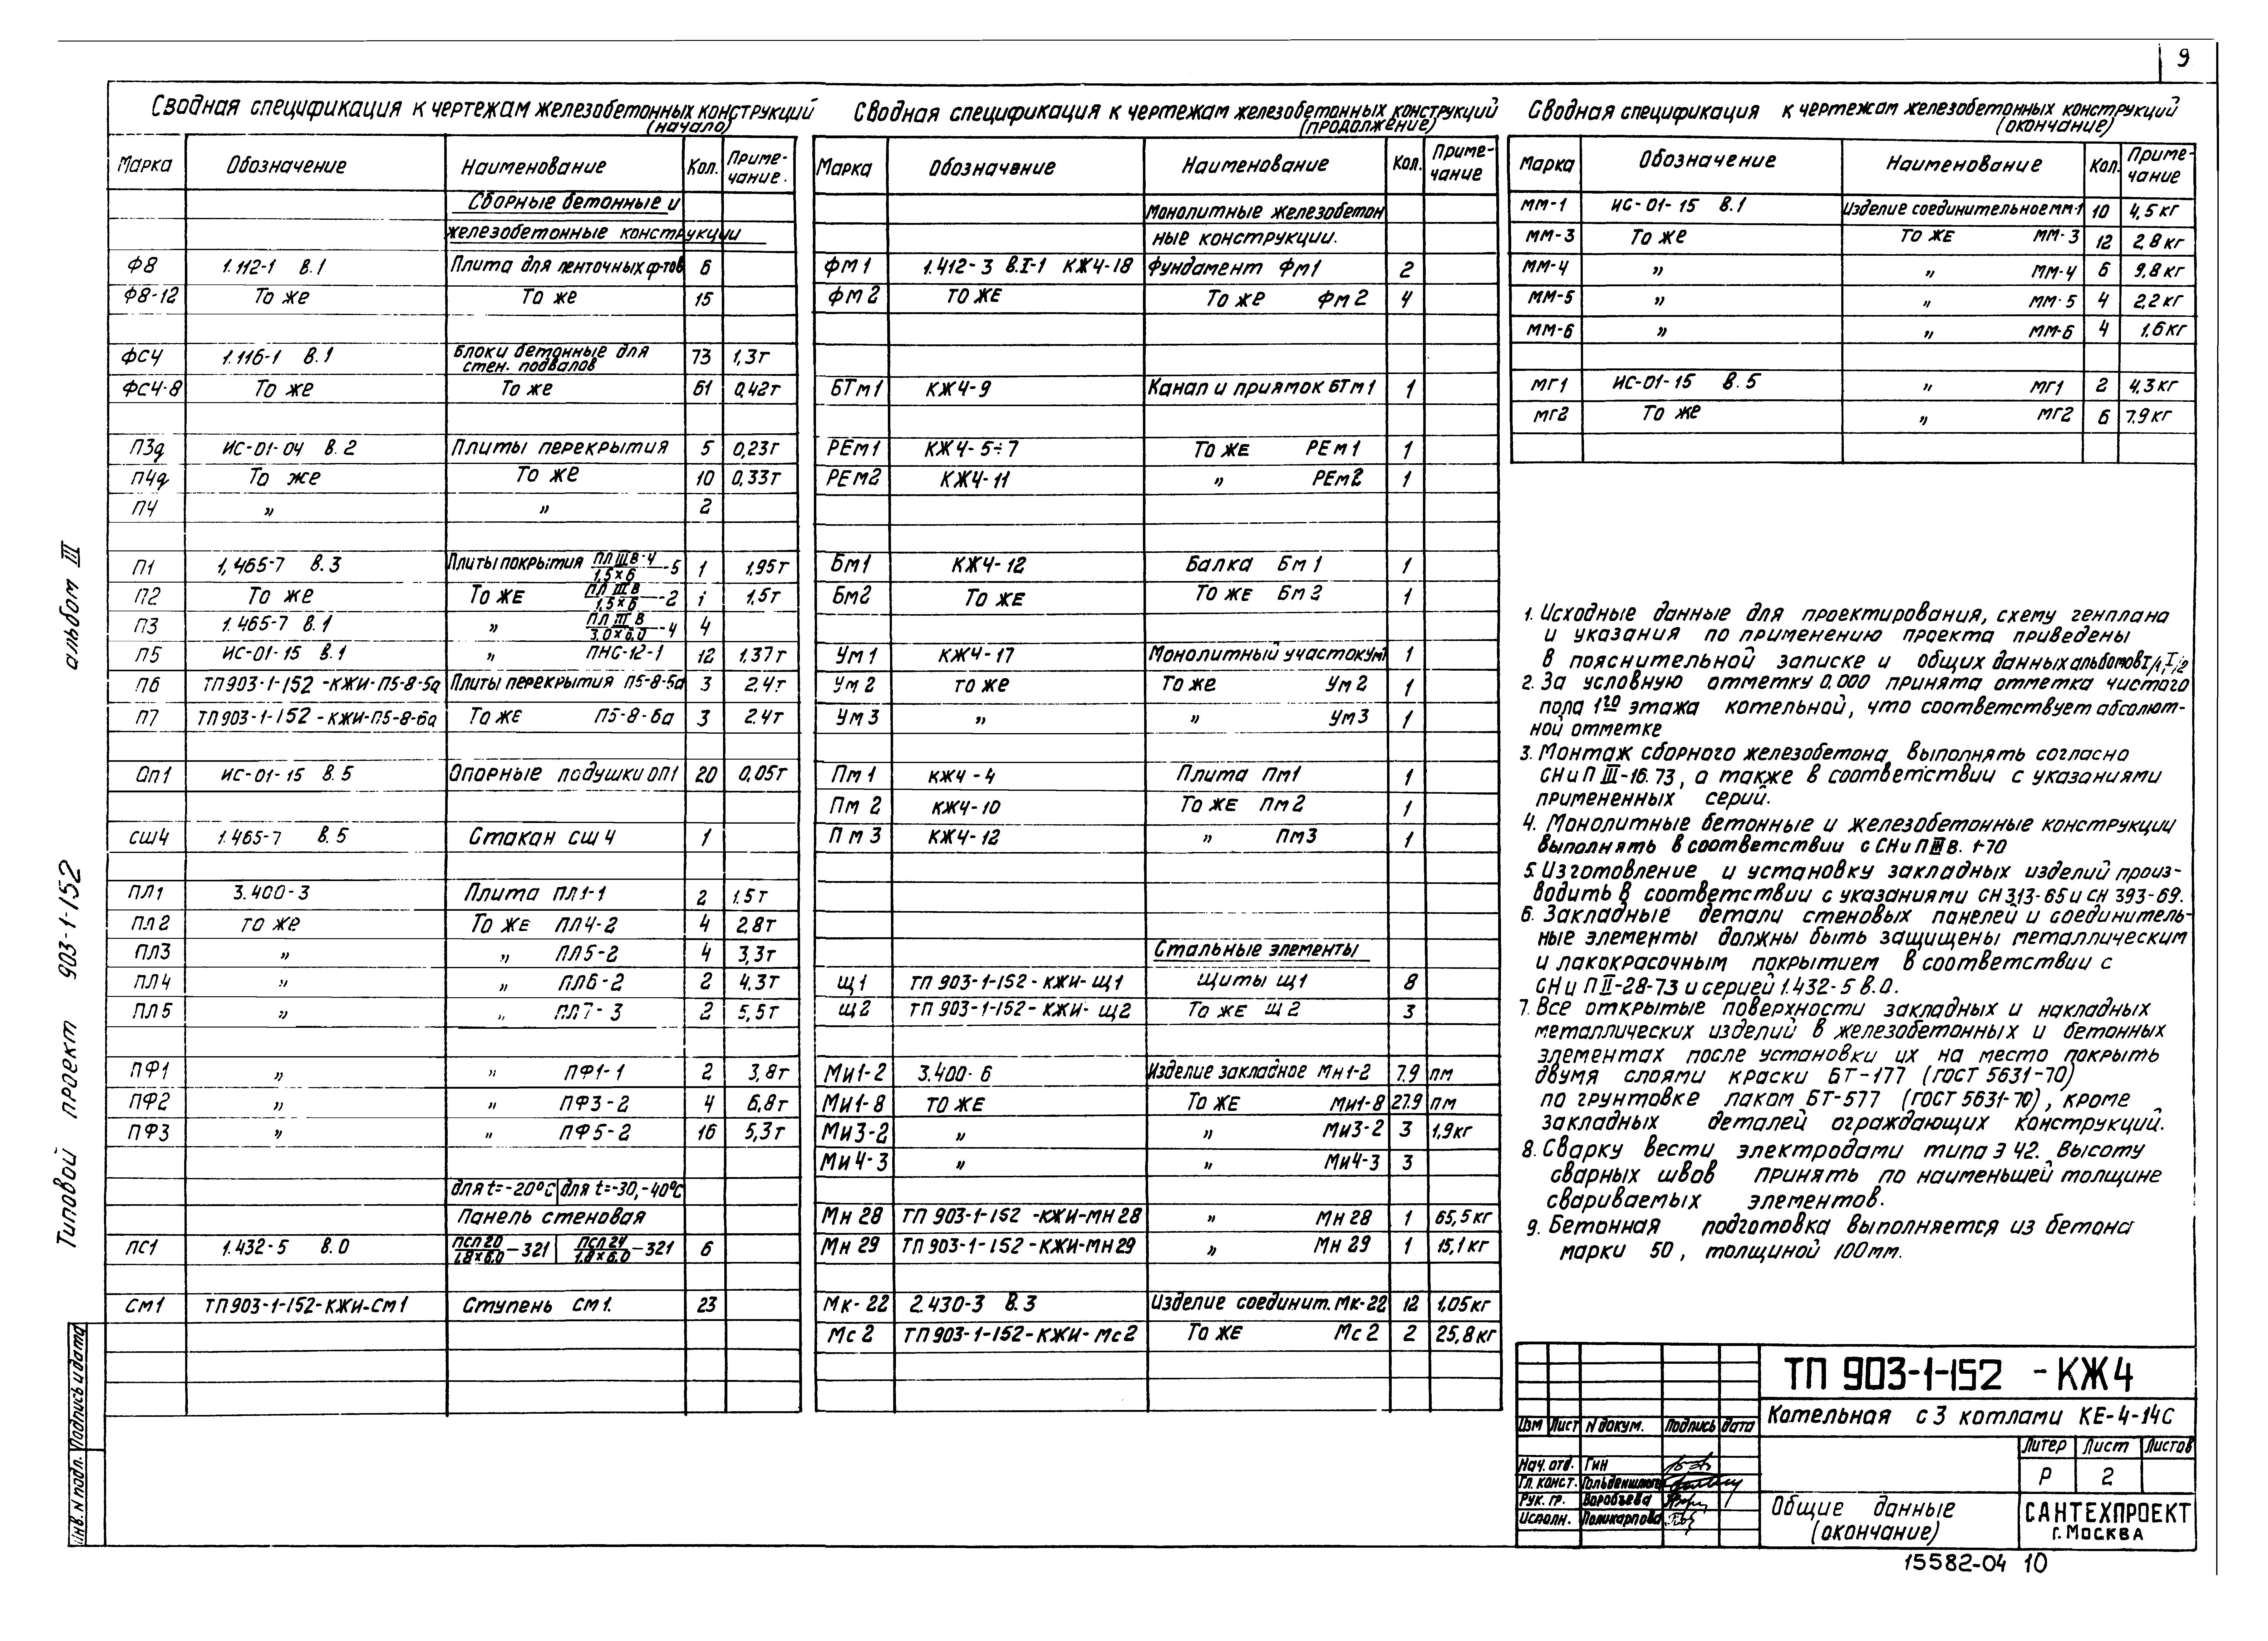 9
Сводная спецификация к чертежам железобетонных конструкций
(начало)
Марка Обозначение Наименование Кол. Приме-чание.
Сборные бетонные и
железобетонные конструкции
Ф8 1.112-1 В.1 Плита для ленточных ф-тов 6
Ф8-12 То же То же 15
ФС4 1.116-1 В.1 Блоки бетонные для стен. подвалов 73 1,3т
ФС4-8 То же То же 61 0,42т
П3д ИС-01-04 В.2 Плиты перекрытия 5 0,23т
П4д То же То же 10 0,33т
П4 „ „ 2
П1 1,465-7 В.3 Плиты покрытия ПЛ III В-4/1,5×6-5 1 1,95т
П2 То же То же ПЛ III В/1,5×6-2 1 1,5т
П3 1.465-7 В.1 „ ПЛ III В/3,0×6,0-4 4
П5 ИС-01-15 В.1 „ ПНС-12-1 12 1,37т
П6 ТП903-1-152-КЖИ-П5-8-5а Плиты перекрытия П5-8-5а 3 2.4т
П7 ТП903-1-152-КЖИ-П5-8-6а То же П5-8-6а 3 2.4т
Оп1 ИС-01-15 В.5 Опорные подушки ОП1 20 0,05т
СШ4 1.465-7 В.5 Стакан СШ4 1
ПЛ1 3.400-3 Плита ПЛ1-1 2 1.5т
ПЛ2 То же То же ПЛ4-2 4 2,8т
ПЛ3 „ „ ПЛ5-2 4 3,3т
ПЛ4 „ „ ПЛ6-2 2 4.3т
ПЛ5 „ „ ПЛ7-3 2 5,5т
ПФ1 „ „ ПФ1-1 2 3,8т
ПФ2 „ „ ПФ3-2 4 6,8т
ПФ3 „ „ ПФ5-2 16 5,3т
для t=-20°С для t=-30,-40°С
Панель стеновая
ПС1 1.432-5 В.0 ПСЛ20/1.8×6.0-321 ПСЛ24/1.8×6.0-321 6
См1 ТП903-1-152-КЖИ-См1 Ступень См1. 23
Сводная спецификация к чертежам железобетонных конструкций
(продолжение)
Марка Обозначение Наименование Кол. Приме-чание
Монолитные железобетон
ные конструкции.
Фм1 1.412-3 В.I-1 КЖ4-18 Фундамент Фм1 2
Фм2 То же То же Фм2 4
БТм1 КЖ4-9 Канал и приямок БТм1 1
РЕм1 КЖ4-5÷7 То же РЕм1 1
РЕм2 КЖ4-11 „ РЕм2 1
Бм1 КЖ4-12 Балка Бм1 1
Бм2 То же То же Бм2 1
Ум1 КЖ4-17 Монолитный участок Ум1 1
Ум2 То же То же Ум2 1
Ум3 „ „ Ум3 1
Пм1 КЖ4-4 Плита Пм1 1
Пм2 КЖ4-10 То же Пм2 1
Пм3 КЖ4-12 „ Пм3 1
Стальные элементы
Щ1 ТП 903-1-152-КЖИ-Щ1 Щиты Щ1 8
Щ2 ТП 903-1-152-КЖИ-Щ2 То же Щ2 3
Ми1-2 3.400-6 Изделие закладное Мн1-2 7.9 пм
Ми1-8 То же То же Ми1-8 27.9 пм
Ми3-2 „ „ Ми3-2 3 1,9кг
Ми4-3 „ „ Ми4-3 3
Мн28 ТП 903-1-152-КЖИ-МН28 „ Мн28 1 65,5кг
Мн29 ТП903-1-152-КЖИ-МН29 „ Мн29 1 15,1кг
Мк-22 2.430-3 В.3 Изделие соединит. Мк-22 12 1,05кг
Мс2 ТП903-1-152-КЖИ-Мс2 То же Мс2 2 25,8кг
Сводная спецификация к чертежам железобетонных конструкций
(окончание)
Марка Обозначение Наименование Кол. Приме-чание
ММ-1 ИС-01-15 В.1 Изделие соединительное ММ-1 10 4,5кг
ММ-3 То же То же ММ-3 12 2,8кг
ММ-4 „ „ ММ-4 6 9,8кг
ММ-5 „ „ ММ-5 4 2,2кг
ММ-6 „ „ ММ-6 4 1.6кг
МГ1 ИС-01-15 В.5 „ МГ1 2 4,3кг
МГ2 То же „ МГ2 6 7.9кг
1. Исходные данные для проектирования, схему генплана
и указания по применению проекта приведены
в пояснительной записке и общих данных альбомов I/1, I/2
2. За условную отметку 0.000 принята отметка чистого
пола 1го этажа котельной, что соответствует абсолют-
ной отметке
3. Монтаж сборного железобетона выполнять согласно
СНиП III-16.73, а также в соответствии с указаниями
примененных серий.
4. Монолитные бетонные и железобетонные конструкции
выполнять в соответствии с СНиП III В. 1-70
5. Изготовление и установку закладных изделий произ-
водить в соответствии с указаниями СН 313-65 и СН 393-69.
6. Закладные детали стеновых панелей и соединитель-
ные элементы должны быть защищены металлическим
и лакокрасочным покрытием в соответствии с
СНиП II-28-73 и серией 1.432-5 В.0.
7. Все открытые поверхности закладных и накладных
металлических изделий в железобетонных и бетонных
элементах после установки их на место покрыть
двумя слоями краски БТ-177 (ГОСТ 5631-70)
по грунтовке лаком БТ-577 (ГОСТ 5631-70), кроме
закладных деталей ограждающих конструкций.
8. Сварку вести электродами типа Э 42. Высоту
сварных швов принять по наименьшей толщине
свариваемых элементов.
9. Бетонная подготовка выполняется из бетона
марки 50, толщиной 100мм.
Типовой проект 903-1-152 альбом III
Инв. N подл. Подпись и дата
ТП 903-1-152 -КЖ4
Котельная с 3 котлами КЕ-4-14С
Изм Лист N докум. Подпись дата
Нач. отд. Гин
Гл. конст.
Рук. гр. Воробьева
Исполн. Поликарпова
Литер Лист Листов
Р 2
Общие данные
(окончание)
САНТЕХПРОЕКТ
г. Москва
15582-04 10